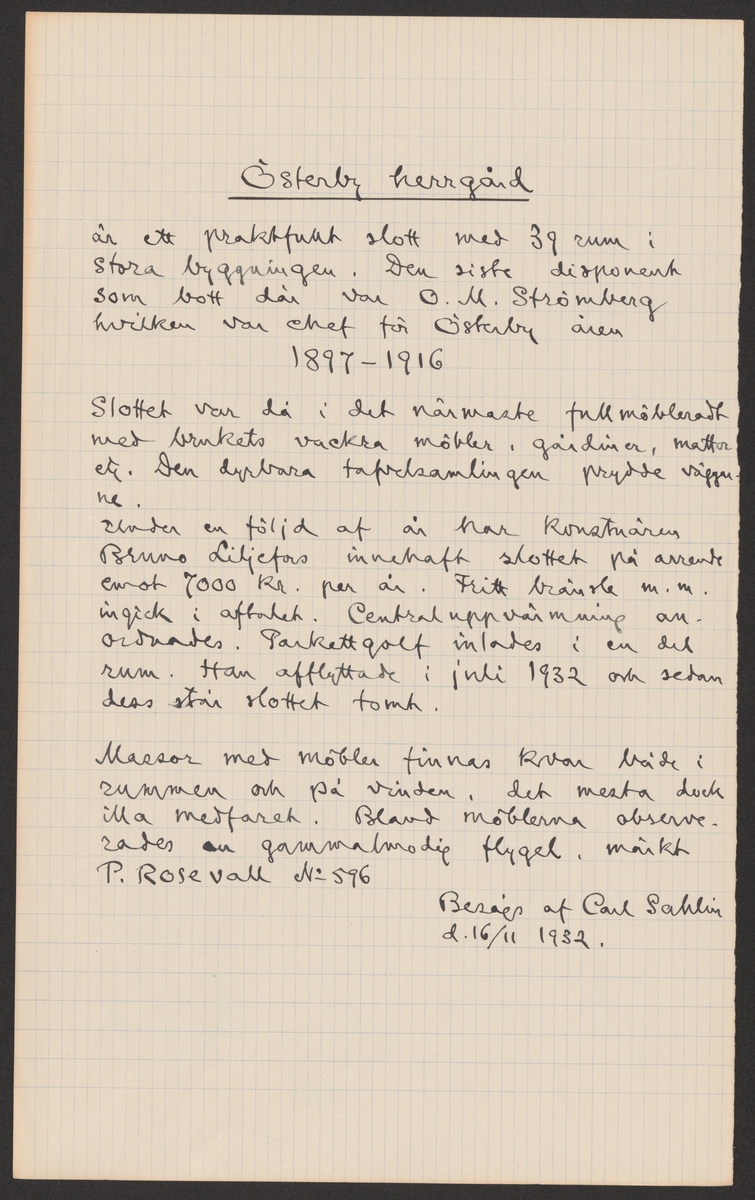 Österby herrgård
är ett praktfullt slott med 39 rum i
stora byggningen. Den siste disponent
som bott där var O. M. Strömberg
hvilken var chef för Österby åren
1897-1916
Slottet var då i det närmaste fullmöbleradt
med brukets vackra möbler, gardiner, mattor
etc. Den dyrbara tafvelsamlingen prydde väggar-
ne.
Under en följd af år har konstnären
Bruno Liljefors innehaft slottet på arrende
emot 7000 kr. per år. Fritt bränsle m.m.
ingick i aftalet. Centraluppvärmning an-
ordnades. Parkettgolf inlades i en del
rum. Han afflyttade i juli 1932 och sedan
dess står slottet tomt.
Massor med möbler finnas kvar både i
rummen och på vinden, det mesta dock
illa medfaret. Bland möblerna observe-
rades en gammalmodig flygel, märkt
P. Rosevall No 596
Besågs af Carl Sahlin
d. 16/11 1932.